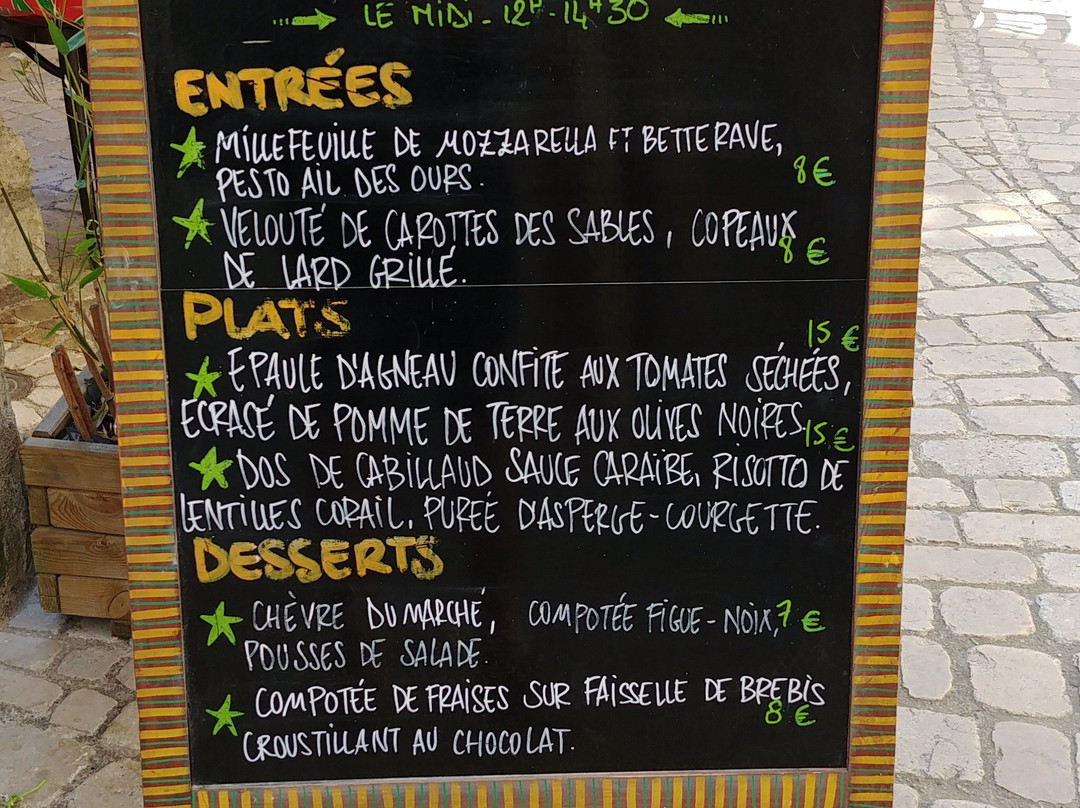 LE MIDI - 12H - 14H30
ENTRÉES
MILLEFEUILLE DE MOZZARELLA ET BETTERAVE,
PESTO AIL DES OURS. 8€
VELOUTÉ DE CAROTTES DES SABLES, COPEAUX
DE LARD GRILLÉ. 8€
PLATS
15 €
EPAULE D'AGNEAU CONFITE AUX TOMATES SÉCHÉES,
ECRASÉ DE POMME DE TERRE AUX OLIVES NOIRES, 15 €
DOS DE CABILLAUD SAUCE CARAÏBE, RISOTTO DE
LENTILLES CORAIL, PUREÉ D'ASPERGE-COURGETTE.
DESSERTS
CHÈVRE DU MARCHÉ, COMPOTÉE FIGUE-NOIX, 7 €
POUSSES DE SALADE.
COMPOTÉE DE FRAISES SUR FAISSELLE DE BREBIS
8 €
CROUSTILLANT AU CHOCOLAT.